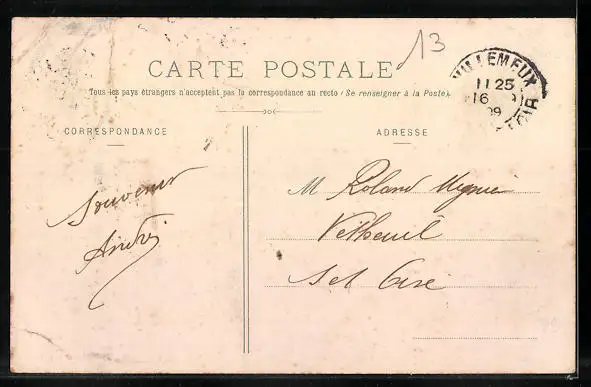 13
CARTE POSTALE
Tous les pays étrangers n'acceptent pas la correspondance au recto (Se renseigner à la Poste).
VILLEMEUX
11 25
16
09
LOIR
CORRESPONDANCE
ADRESSE
Souvenir
André
M Roland
Vetheuil
Set Oise